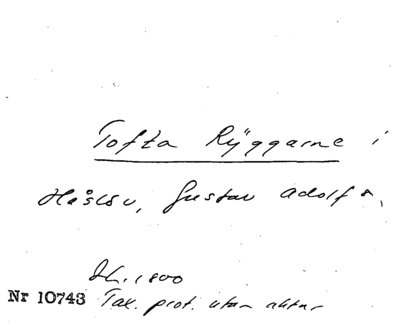 Tofta Ryggarne i
Håslöv, Gustav Adolf s.
Sk. 1800
Nr 10743 Tax. prot. utan aktnr